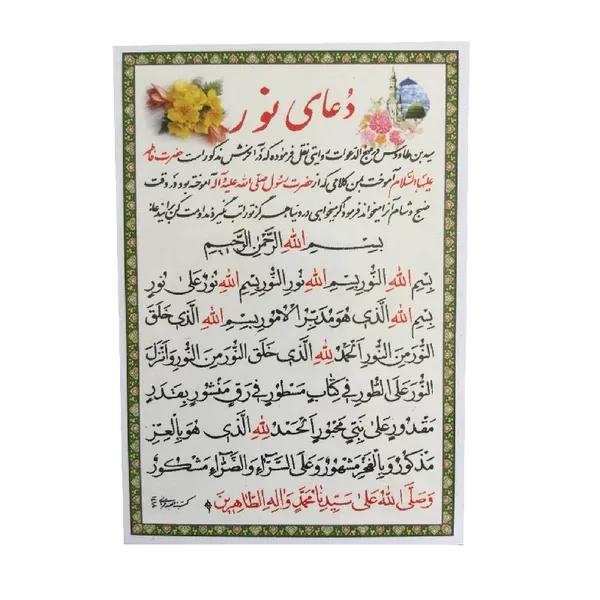 دُعای نور
سید بن طاووس در مهج الدعوات روایتی نقل فرموده که در آخرش مذکور است حضرت فاطمه
علیها السلام آموخت بمن کلامی که از حضرت رسول صلی الله علیه و آله آموخته بود و در وقت
صبح و شام آنرا میخواند فرمود گر میخواهی در دنیا هرگز تو را تب نگیرد مداومت کن بر اینها
بِسْمِ اللهِ الرَّحْمنِ الرَّحیمِ
بِسْمِ اللهِ النُّورِ بِسْمِ اللهِ نُورِ النُّورِ بِسْمِ اللهِ نُورٌ عَلی نُورٍ
بِسْمِ اللهِ الَّذی هُوَ مُدَبِّرُ الْاُمُورِ بِسْمِ اللهِ الَّذی خَلَقَ
النُّورَ مِنَ النُّورِ اَلْحَمْدُ لِلّهِ الَّذی خَلَقَ النُّورَ مِنَ النُّورِ وَ اَنْزَلَ
النُّورَ عَلَی الطُّورِ فی کِتابٍ مَسْطُورٍ فی رَقٍّ مَنْشُورٍ بِقَدَرٍ
مَقْدُورٍ عَلی نَبِیٍّ مَحْبُورٍ اَلْحَمْدُ لِلّهِ الَّذی هُوَ بِالْعِزِّ
مَذْکُورٌ وَ بِالْفَخْرِ مَشْهُورٌ وَ عَلَی السَّرّاءِ وَ الضَّرّاءِ مَشْکُورٌ
وَ صَلَّی اللهُ عَلی سَیِّدِنا مُحَمَّدٍ وَ الِهِ الطّاهِرینَ